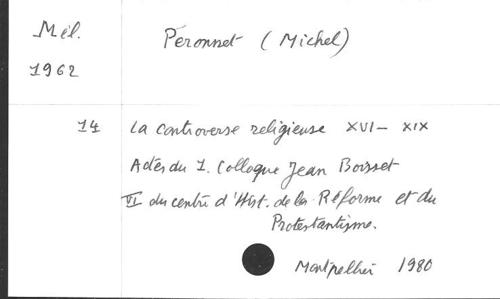 Mél. Peronnet (Michel)
1962
14 La controverse religieuse XVI - XIX
Actes du 1. Colloque Jean Boisset
VI du centre d'Hist. de la Réforme et du
Protestantisme.
Montpellier 1980